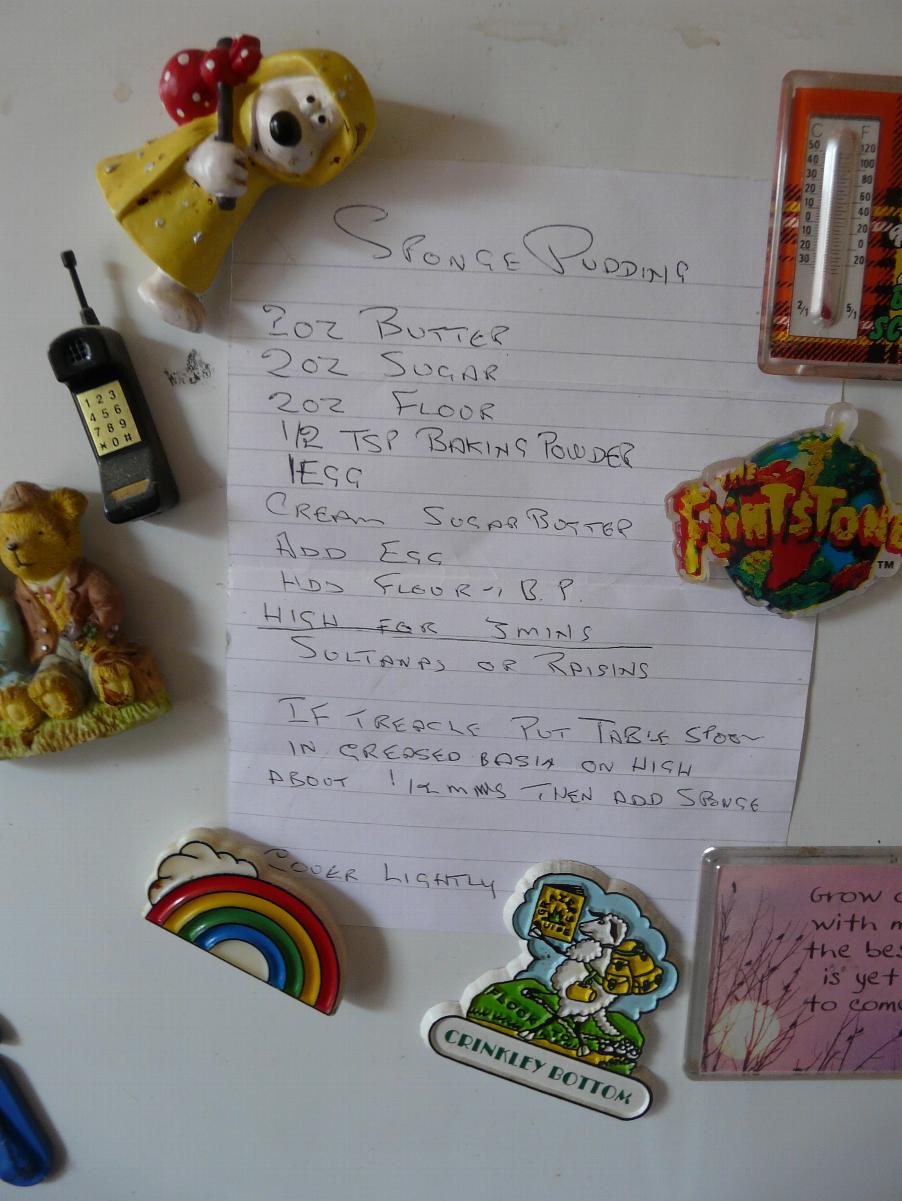 SPONGE PUDDING
2OZ BUTTER
2OZ SUGAR
2OZ FLOOR
1/2 TSP BAKING POWDER
1 EGG
CREAM SUGAR BUTTER
ADD EGG
ADD FLOOR B.P.
HIGH FOR 3 MINS
SULTANAS OR RAISINS
IF TREACLE PUT TABLE SPOON
IN GREASED BASIN ON HIGH
ABOUT 1/2 MINS THEN ADD SPONGE
COVER LIGHTLY
C F
50 120
40 100
30 80
20 60
10 40
0 20
10 0
20 20
30
2/1 5/1
1 2 3
4 5 6
7 8 9
* 0 #
THE
FLINTSTONE
TM
GUIDE
CRINKLEY BOTTOM
Grow
with
the
is yet
to come